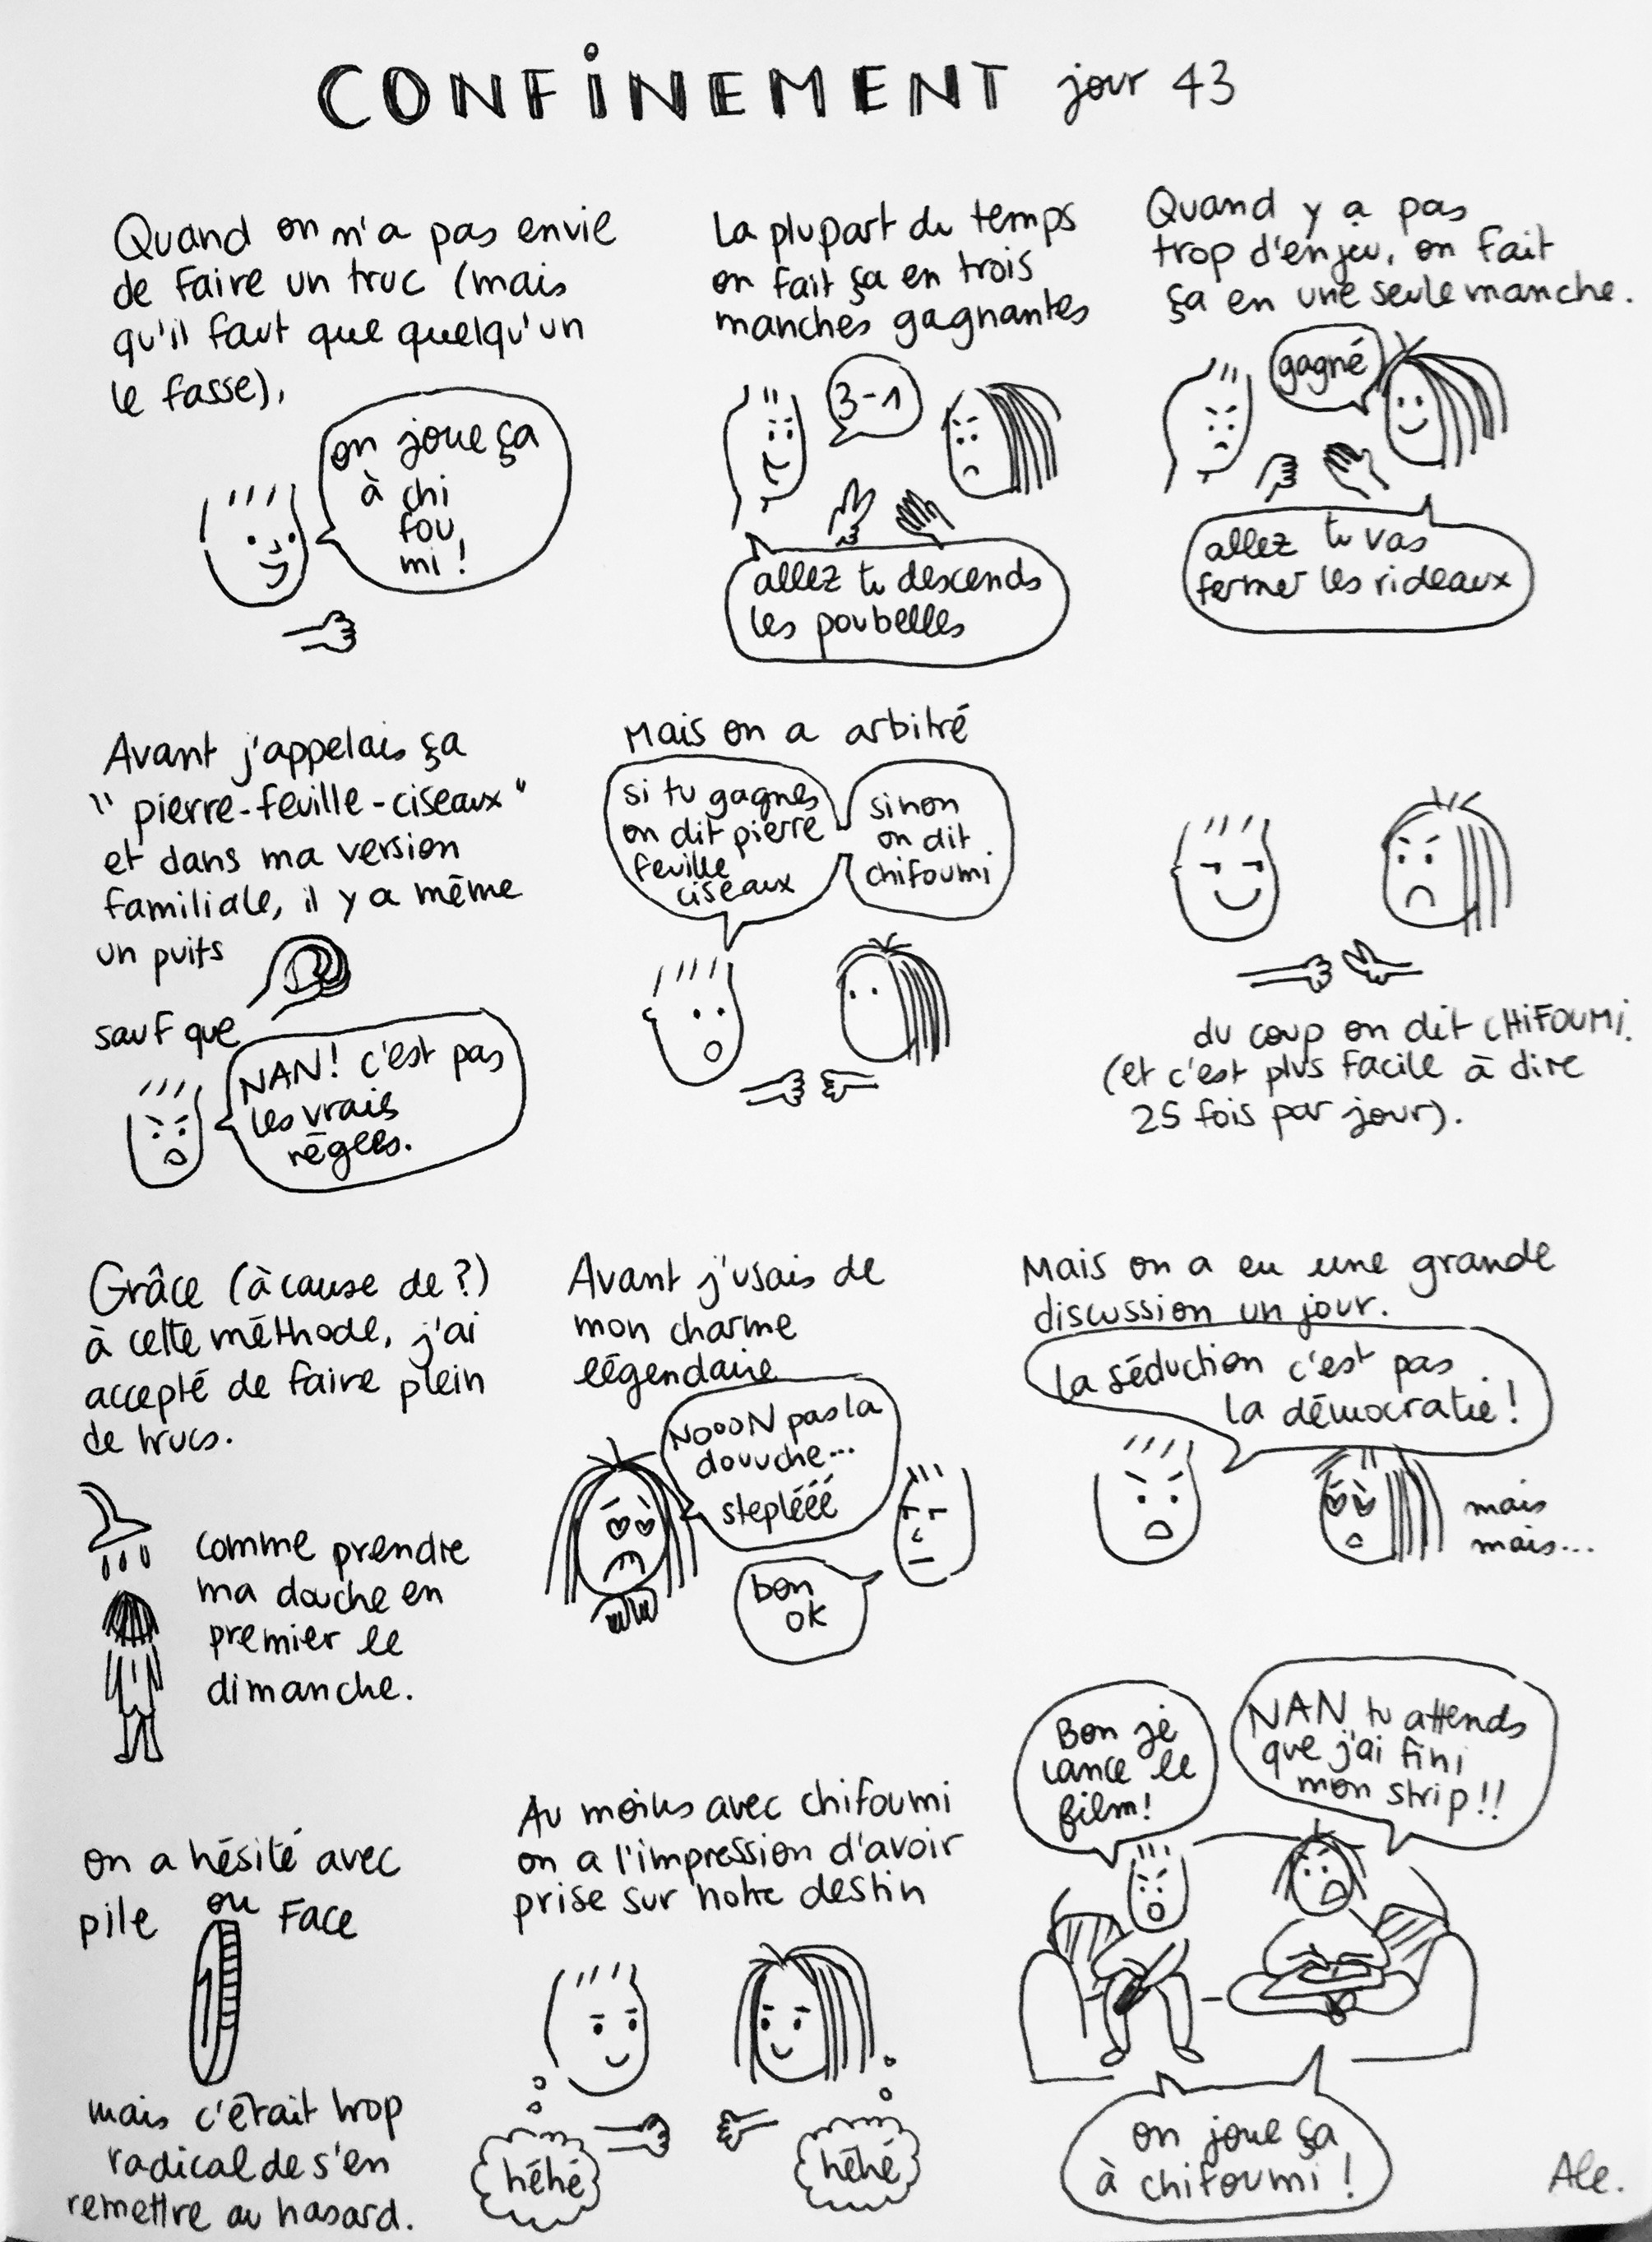 CONFINEMENT jour 43
Quand on n'a pas envie
de faire un truc (mais
qu'il faut que quelqu'un
le fasse),
on joue ça
à chi
fou
mi !
La plupart du temps
on fait ça en trois
manches gagnantes
3-1
allez tu descends
les poubelles
Quand y a pas
trop d'enjeu, on fait
ça en une seule manche.
gagné
allez tu vas
fermer les rideaux
Avant j'appelais ça
"pierre-feuille-ciseaux"
et dans ma version
familiale, il y a même
un puits
sauf que
NAN! c'est pas
les vraies
règles.
Mais on a arbitré
si tu gagnes
on dit pierre
feuille
ciseaux
sinon
on dit
chifoumi
du coup on dit CHIFOUMI.
(et c'est plus facile à dire
25 fois par jour).
Grâce (à cause de ?)
à cette méthode, j'ai
accepté de faire plein
de trucs.
comme prendre
ma douche en
premier le
dimanche.
Avant j'usais de
mon charme
légendaire
NOOON pas la
douuche...
steplééé
bon
ok
Mais on a eu une grande
discussion un jour.
la séduction c'est pas
la démocratie !
mais
mais...
on a hésité avec
pile ou face
1
mais c'était trop
radical de s'en
remettre au hasard.
Au moins avec chifoumi
on a l'impression d'avoir
prise sur notre destin
héhé
héhé
Bon je
lance le
film!
NAN tu attends
que j'ai fini
mon strip !!
on joue ça
à chifoumi !
Ale.